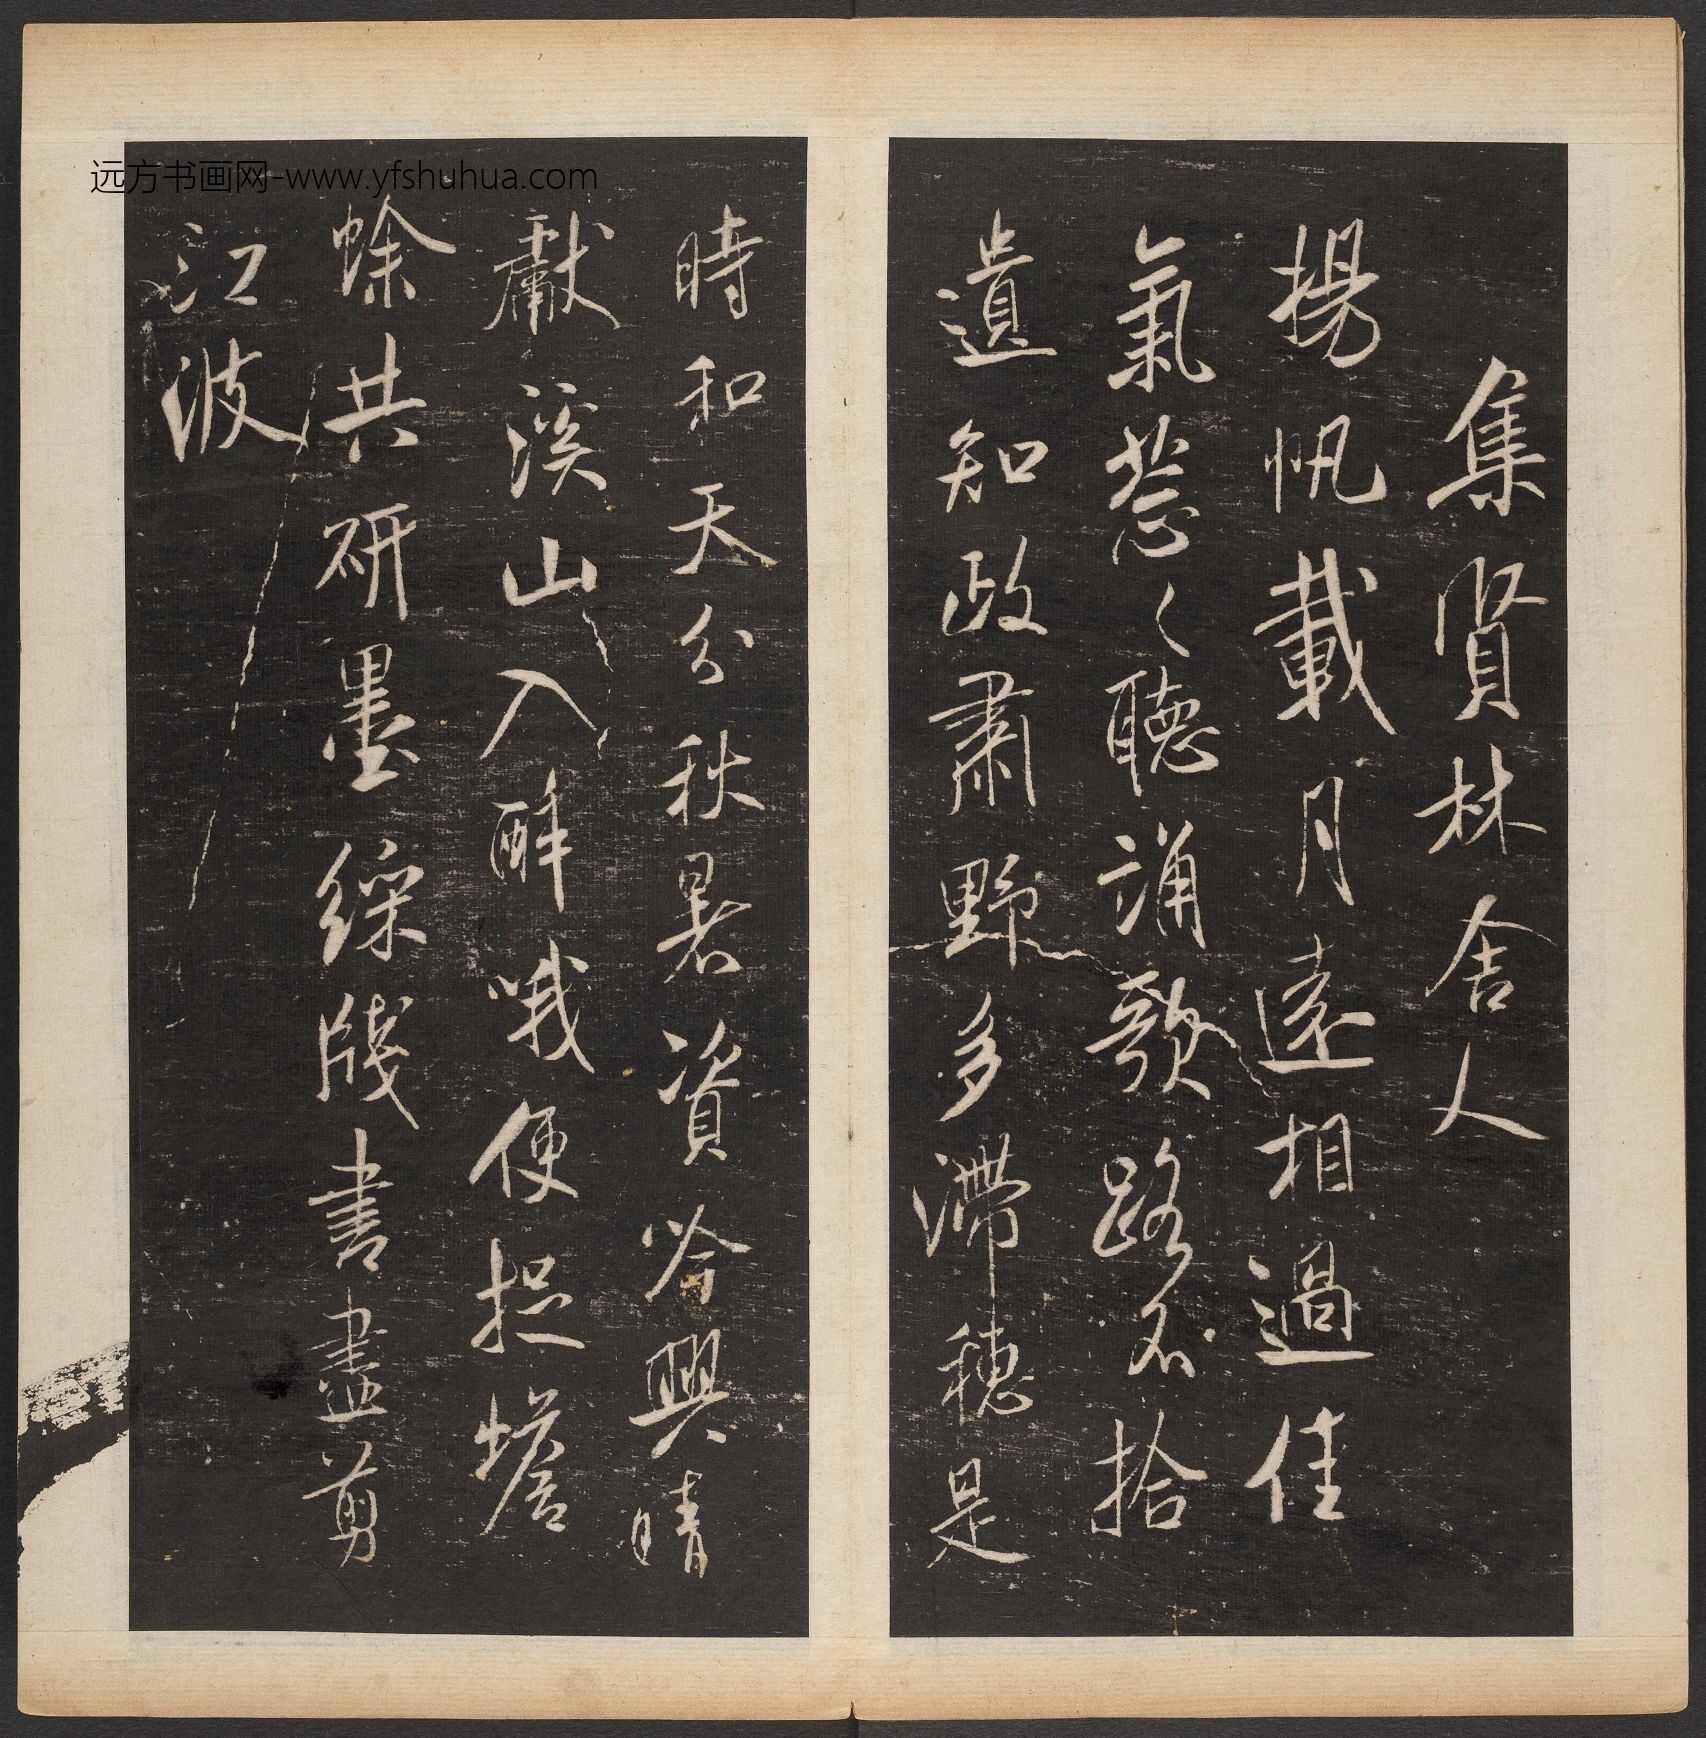 远方书画网-www.yfshuhua.com
集賢林舍人
揚帆載月遠相過佳
氣葱々聽誦歌路不拾
遺知政肅野多滯穗是
時和天分秋暑資吟興晴
獻溪山入醉哦便捉蟾
蜍共研墨綵牋書盡剪
江波